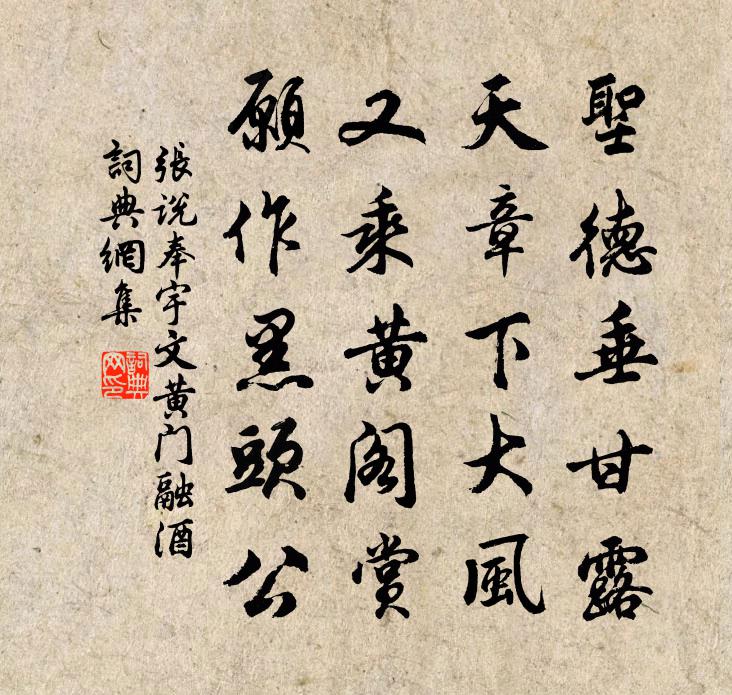 聖德垂甘露
天章下大風
又乘黃阁賞
願作黑頭公
張说奉宇文黄门融酒
詞典網集
詞典網印